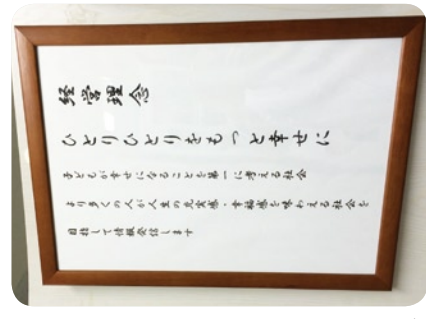 経営理念
ひとりひとりをもっと幸せに
子どもが幸せになることを第一に考える社会
より多くの人が人生の充実感・幸福感を味わえる社会を
目指して情報発信します